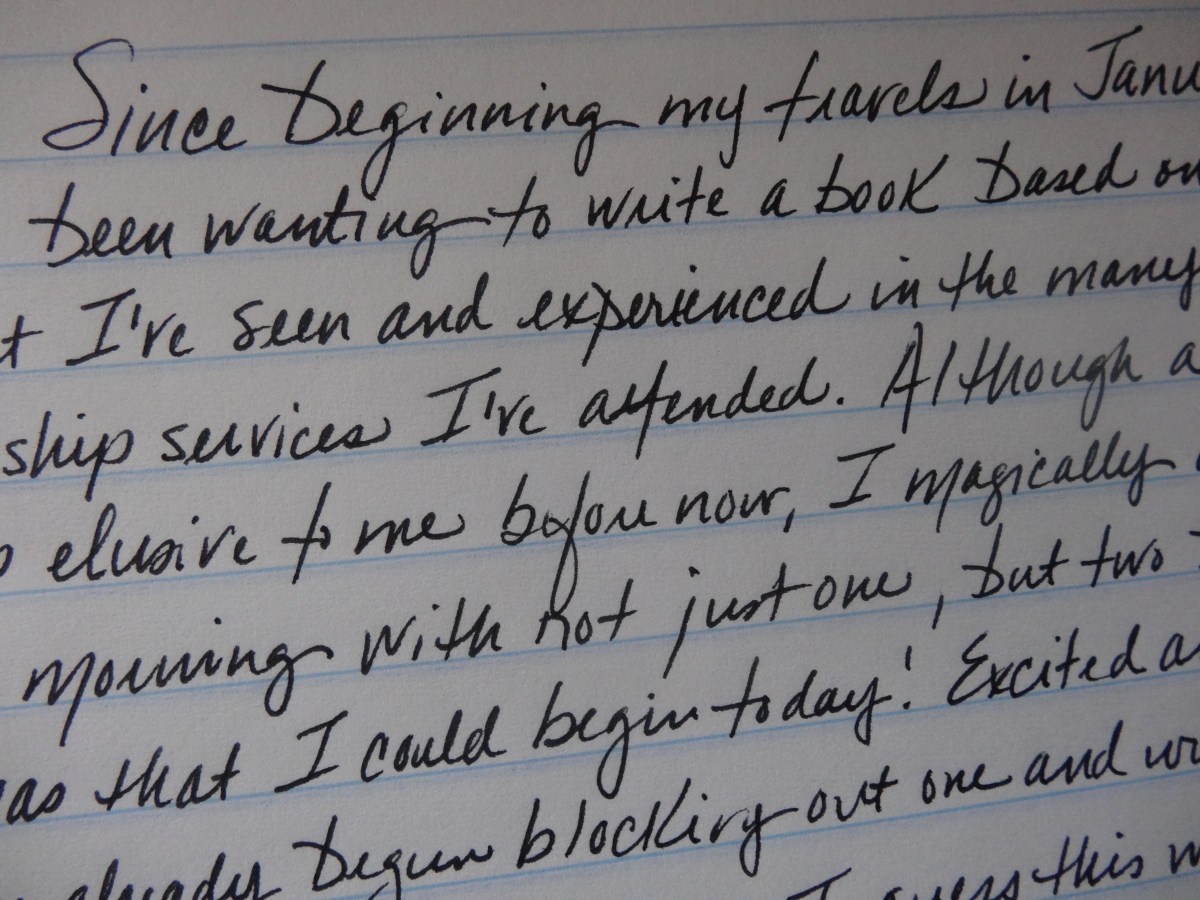 Since beginning my travels in Janu
been wanting to write a book based on
t I've seen and experienced in the many
ship services I've attended. Although a
elusive to me before now, I magically
morning with not just one, but two
as that I could begin today! Excited a
already begun blocking out one and
I guess this